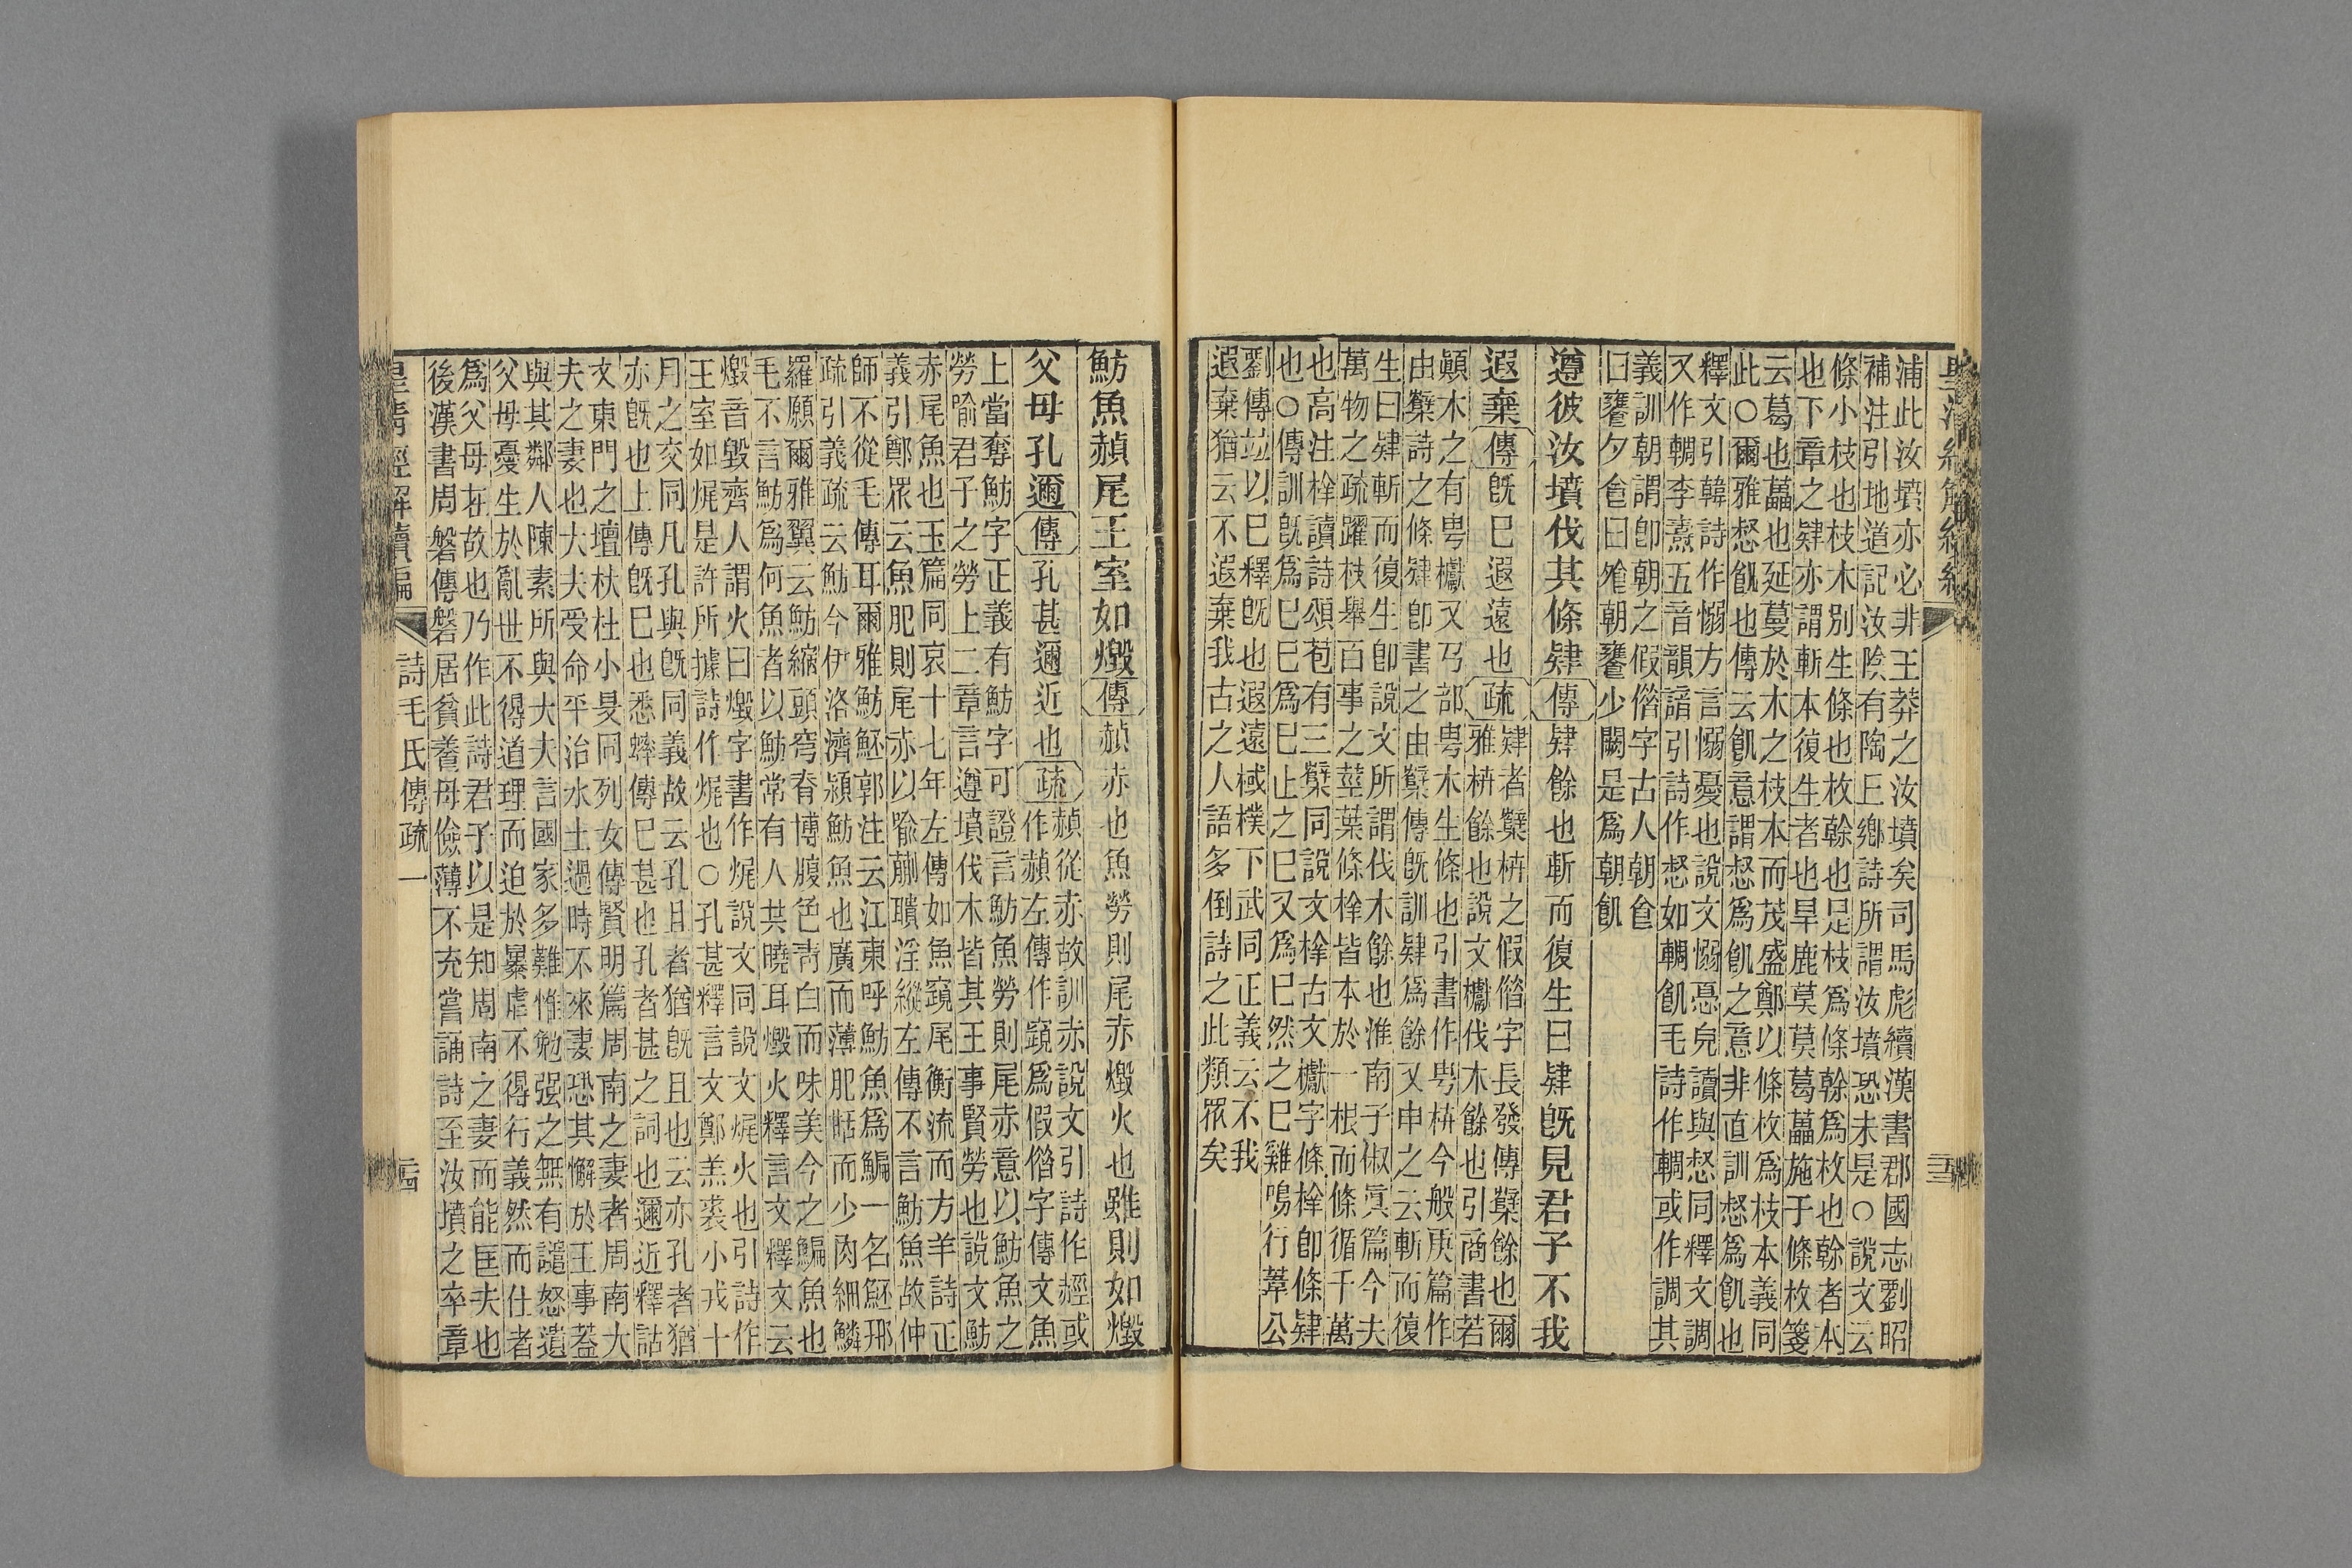 浦此汝墳亦必非王莽之汝墳矣司馬彪續漢書郡國志劉昭
補注引地道記汝陰有陶上鄉詩所謂汝墳恐未是○說文云
條小枝也枝木別生條也枚榦也是枝爲條榦爲枚也榦者本
也下章之肄亦謂斬本復生者也旱鹿莫莫葛藟施于條枚箋
云葛也藟也延蔓於木之枝本而茂盛鄭以條枚爲枝本義同
此○爾雅惄飢也傳云飢意謂惄爲飢之意非直訓惄爲飢也
釋文引韓詩作惄方言惄憂也說文惄憂皃讀與惄同釋文調
又作輖李燾五音韻譜引詩作惄如輖飢毛詩作輖或作調其
義訓朝謂卽朝之假借字古人朝食
曰饔夕食曰飧朝饔少闕是爲朝飢
遵彼汝墳伐其條肄傳肄餘也斬而復生曰肄旣見君子不我
遐棄傳旣已遐遠也疏
肄者櫱枿之假借字長發傳櫱餘也爾
雅枿餘也說文櫱伐木餘也引商書若
顚木之有㽕櫱又丂部㽕木生條也引書作㽕枿今般庚篇作
由櫱詩之條肄卽書之由櫱傳旣訓肄爲餘又申之云斬而復
生曰肄斬而復生卽說文所謂伐木餘也淮南子俶眞篇今夫
萬物之疏躍枝舉百事之莖葉條栓皆本於一根而條循千萬
也高注栓讀詩頌苞有三櫱同說文栓古文櫱字條栓卽條肄
也○傳訓旣爲已已爲已止之已又爲已然之已雞鳴行葦公
劉傳竝以已釋旣也遐遠棫樸下武同正義云不我
遐棄猶云不遐棄我古之人語多倒詩之此類眾矣
魴魚赬尾王室如燬傳赬赤也魚勞則尾赤燬火也雖則如燬
父母孔邇傳孔甚邇近也疏
赬從赤故訓赤說文引詩作䞓或
作赬左傳作竀爲假借字傳文魚
上當奪魴字正義有魴字可證言魴魚勞則尾赤意以魴魚之
勞喻君子之勞上二章言遵墳伐木皆其王事賢勞也說文魴
赤尾魚也玉篇同哀十七年左傳如魚竀尾衡流而方羊詩正
義引鄭眾云魚肥則尾赤以喻蒯聵淫縱左傳不言魴魚故仲
師不從毛傳耳爾雅魴魾郭注云江東呼魴魚爲鯿一名魾邢
疏引義疏云魴今伊洛濟潁魴魚也廣而薄肥恬而少肉細鱗
羅願爾雅翼云魴縮頭穹脊博腹色靑白而味美今之鯿魚也
毛不言魴爲何魚者以魴常有人共曉耳燬火釋言文釋文云
燬音毀齊人謂火曰燬字書作㷄說文同說文㷄火也引詩作
王室如㷄是許所據詩作㷄也○孔甚釋言文鄭羔裘小戎十
月之交同凡孔與旣同義故云孔且者猶旣且也云亦孔者猶
亦旣也上傳旣已也悉蟀傳已甚也孔者甚之詞也邇近釋詁
文東門之墠杕杜小旻同列女傳賢明篇周南之妻者周南大
夫之妻也大夫受命平治水土過時不來妻恐其懈於王事蓋
與其鄰人陳素所與大夫言國家多難惟勉强之無有譴怒遺
父母憂生於亂世不得道理而迫於暴虐不得行義然而仕者
爲父母在故也乃作此詩君子以是知周南之妻而能匡夫也
後漢書周磐傳磐居貧養母儉薄不充嘗誦詩至汝墳之卒章
皇淸經解續編
詩毛氏傳疏一